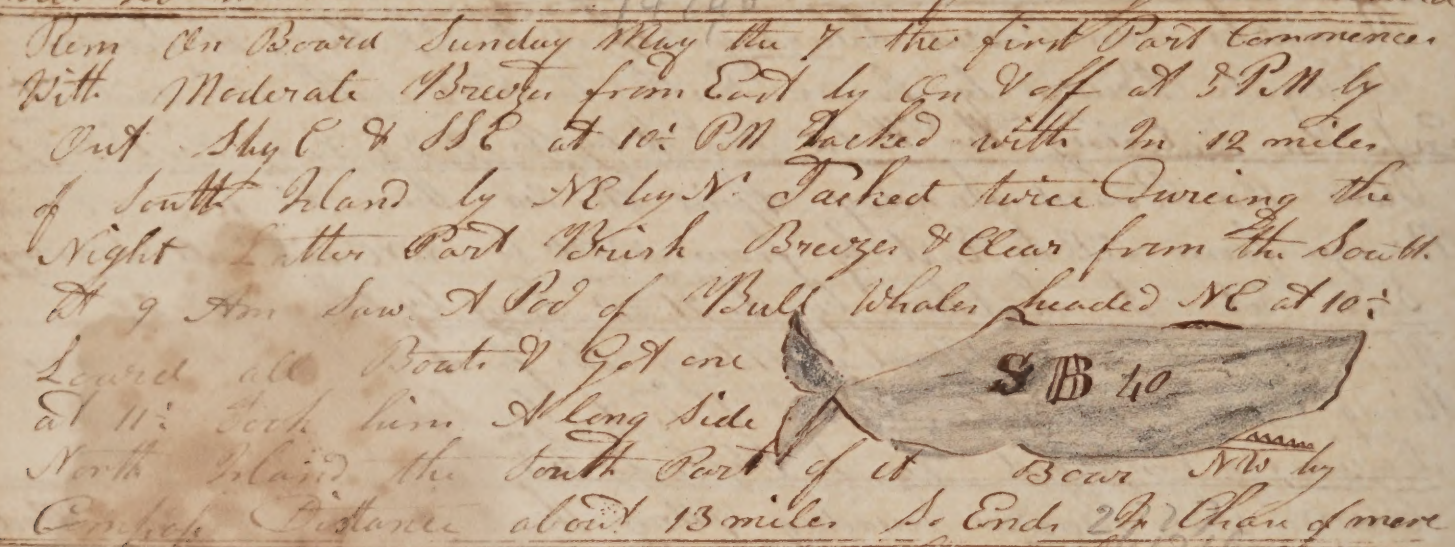 Rem On Board Sunday May the 7 the first Part Commences
With Moderate Breezes from East by On & off at 3 PM by
Out SbyE & SSE at 10: PM Tacked with In 12 miles
of South Island by NE by N. Tacked twice Dureing the
Night Latter Part Brisk Breezes & Clear from the South
at 9 Am Saw A Pod of Bull Whales headed NE at 10:
Lowrd all Boats & Got one
S B 40
at 11: Took him A long Side
North Island the South Part of it Bear NW by
Compass Distance about 13 miles So Ends In Chase of more